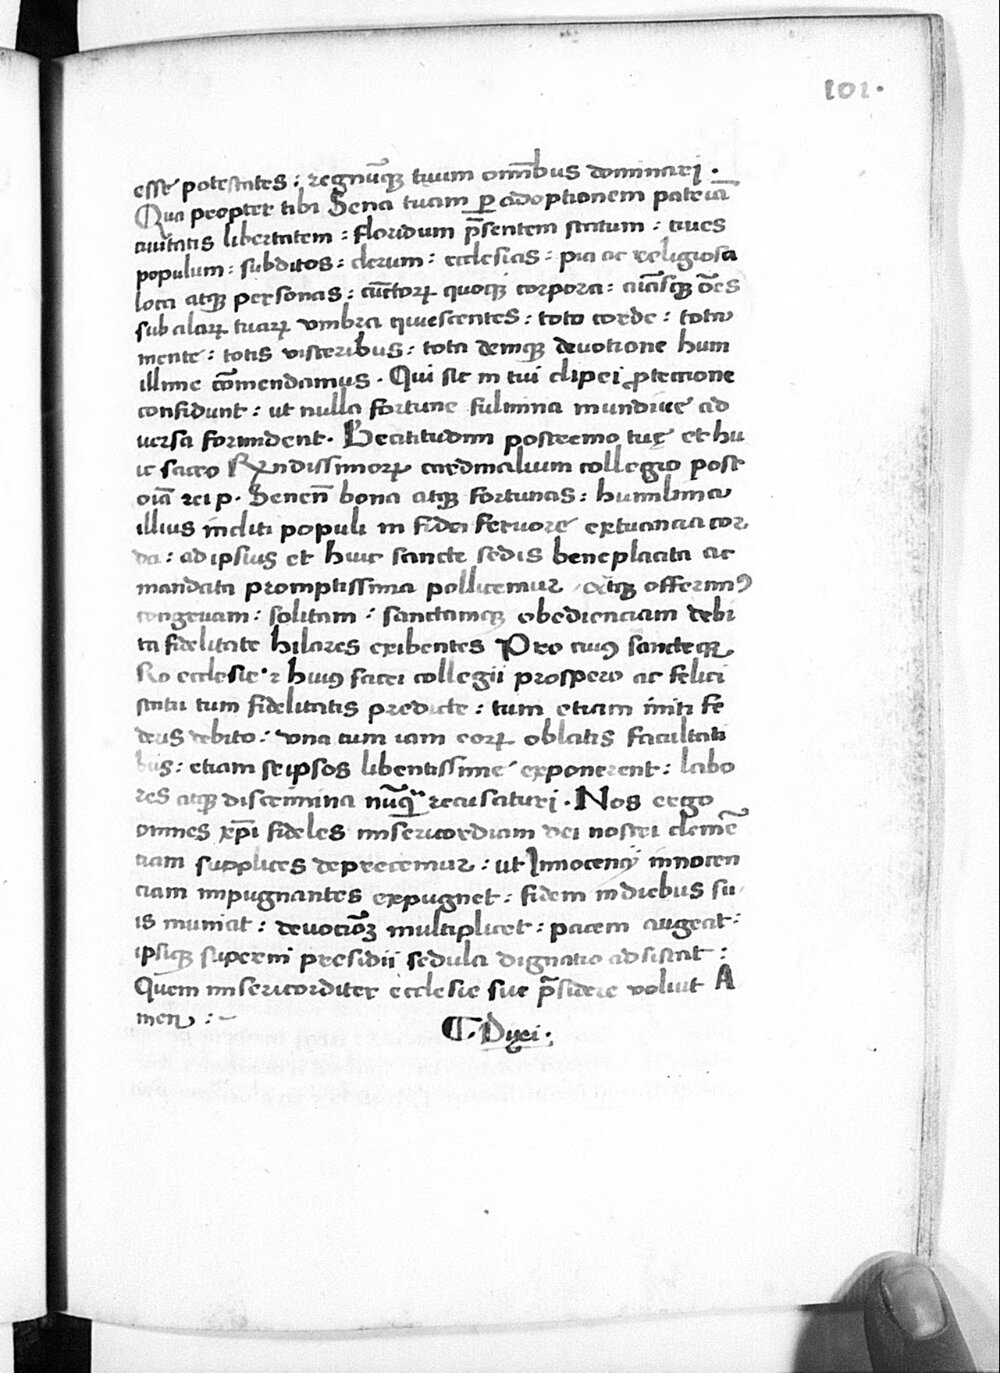 101.
esse potestates : regnūq₃ tuum omībus dominari .
Qua propter tibi Sena tuam ꝑ adoptionem patriā
ciuitatis libertatem : floridum p̄sentem statum : ciues
populum : subditos : clerum : ecclesias : pia ac religiosa
loca atq₃ personas : cūctorꝝ quoq₃ corpora : aīasq₃ oēs
sub alarꝝ tuarꝝ vmbra quiescentes : toto corde : tota
mente : totis visceribus : tota demq₃ deuotione hum
illime cōmendamus . Qui sic in tui clipei ꝓtectione
confidunt : ut nulla fortune fulmina mundiue ad
uersa formident . Beatitudini postremo tuę et hu
ic sacro R̄ndissimorꝝ cardinalium collegio post
oīa rei p . Senen̄ bona atq₃ fortunas : humilima
illius incliti populi in fidei feruore extuancia cor
da : ad ipsius et huic sancte sedis beneplacita ac
mandata promptissima pollicemur atq₃ offerimꝰ
congruam : solitam : sanctamq₃ obedienciam debi
ta fidelitate hilares exibentes Pro cuiꝰ sancteq₃
Ro ecclesie ⁊ huiꝰ sacri collegii prospero ac felici
statu tum fidelitatis predicte : tum etiam initi fe
deris debito : vna cum iam eorꝝ oblatis facultati
bus : etiam seipsos libentissime exponerent : labo
res atq₃ discrimina nūq̄ recusaturi . Nos ergo
omnes xp̄i fideles misericordiam dei nostri clemē
ciam supplices deprecemur : ut Innocencij innocen
ciam impugnantes expugnet : fidem in diebus su
is muniat : deuocionꝫ multiplicet : pacem augeat :
ipsiq₃ superni presidii sedula dignatio adsistat :
Quem misericorditer ecclesie sue p̄sidere voluit A
men : ~
C . Dixi .